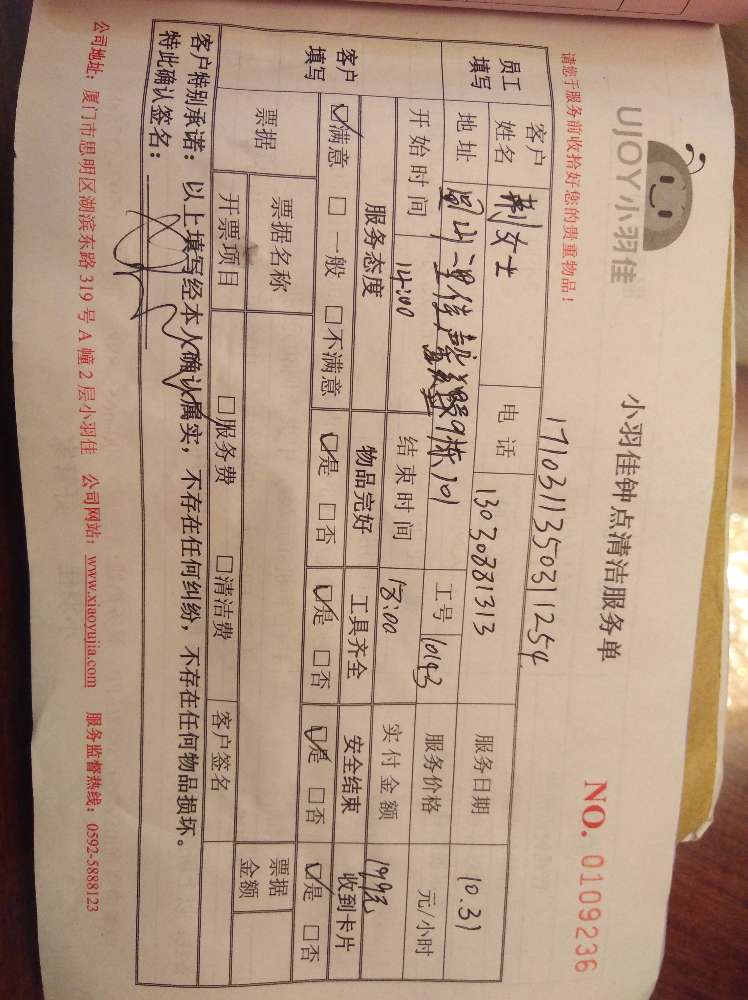 UJOY小羽佳
小羽佳钟点清洁服务单
NO. 0109236
请您于服务前收拾好您的贵重物品！
1710311350311254
员工填写
客户姓名 荆女士 电话 13030881313 服务日期 10.31
地址 9栋101 工号 10143 服务价格 元/小时
开始时间 14:00 结束时间 18:00 实付金额 199元
客户填写
服务态度 物品完好 工具齐全 安全结束 收到卡片
☑满意 □一般 □不满意 ☑是 □否 ☑是 □否 ☑是 □否 ☑是 □否
票据 票据名称 票据金额
开票项目 □服务费 □清洁费 客户签名
客户特别承诺：以上填写经本人确认属实，不存在任何纠纷，不存在任何物品损坏。
特此确认签名：
公司地址：厦门市思明区湖滨东路319号A幢2层小羽佳 公司网站：www.xiaoyujia.com 服务监督热线：0592-5888123